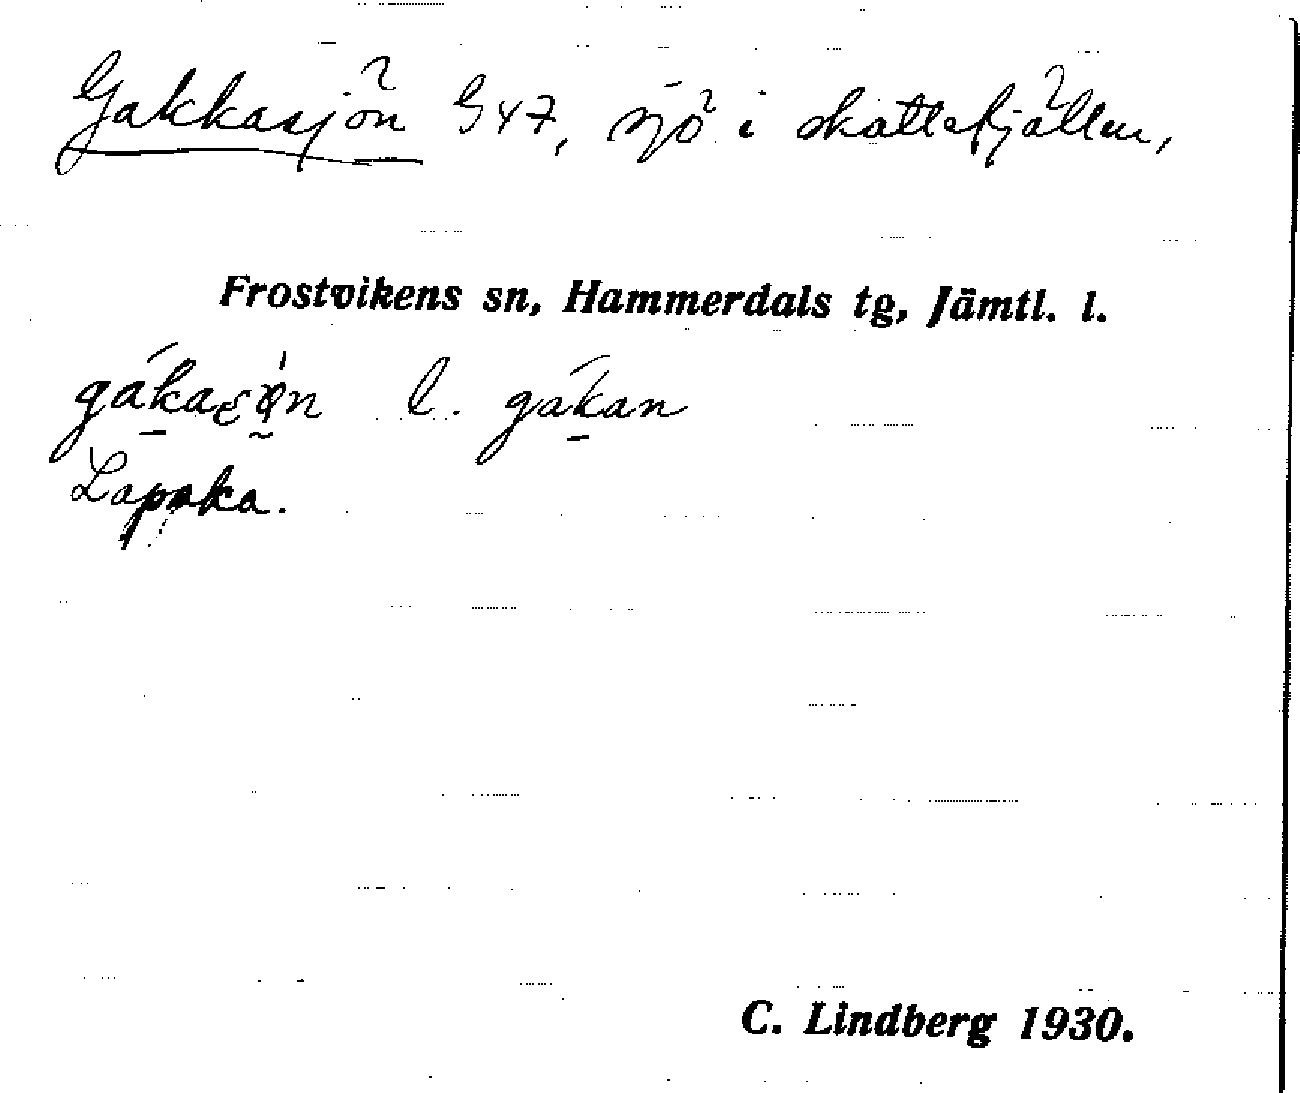 Gakkasjön G47, sjö i skattefjällen,
Frostvikens sn, Hammerdals tg, Jämtl. l.
l. gákan
Lapska.
C. Lindberg 1930.